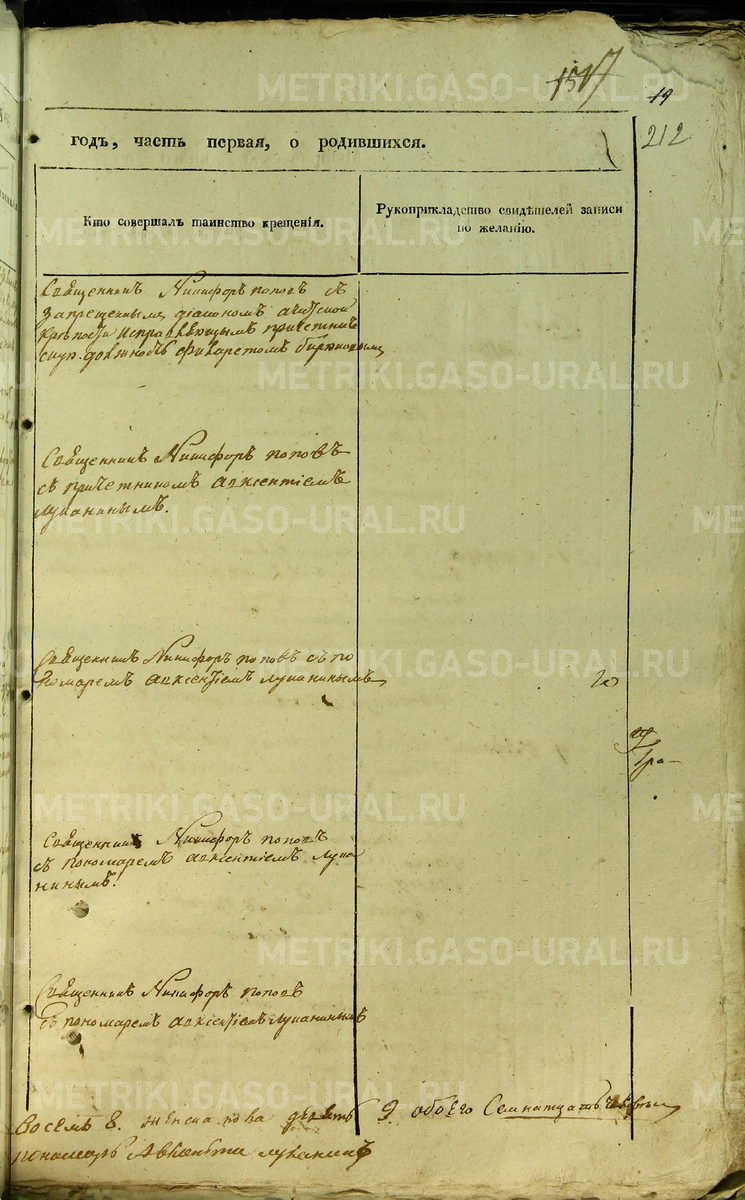 1517
19
212
годъ, часть первая, о родившихся.
Кто совершалъ таинство крещенія.
Рукоприкладство свидѣтелей записи
по желанію.
Священникъ Никифоръ поповъ съ
запрещеннымъ діакономъ ачитской
крѣпости исправляющимъ
должность филаретомъ
Священникъ Никифоръ поповъ
съ причетникомъ авксентіемъ
лупанинымъ.
Священникъ Никифоръ поповъ съ по
номаремъ авксентіемъ лупанинымъ
20
Священникъ Никифоръ поповъ
съ пономаремъ авксентіемъ лупа
нинымъ.
Священникъ Никифоръ поповъ
съ пономаремъ авксентіемъ лупанинымъ
восемь 8. женска пола девять 9 обоего Семнатцать
пономарь Авксентий лупанинъ
METRIKI.GASO-URAL.RU